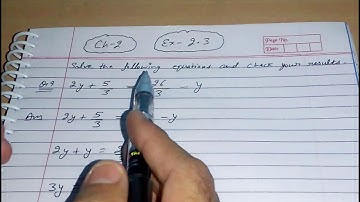 Ch-2 Ex-2.3
Page No.
Date
Solve the following equations and check your results.
Q.9 2y + 5/3 = 26/3 - y
Ans 2y + 5/3 = - y
2y + y =
3y =